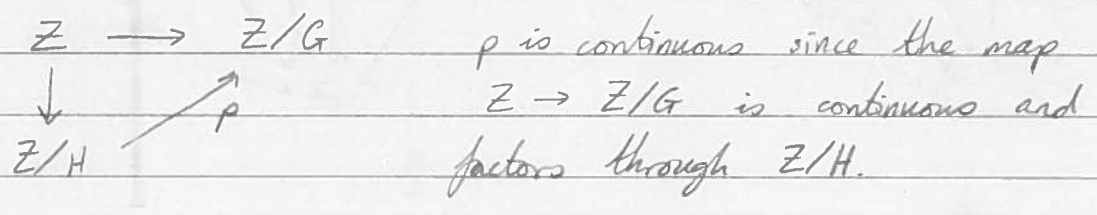 Z → Z/G p is continuous since the map
↓ ↗ p Z → Z/G is continuous and
Z/H factors through Z/H.